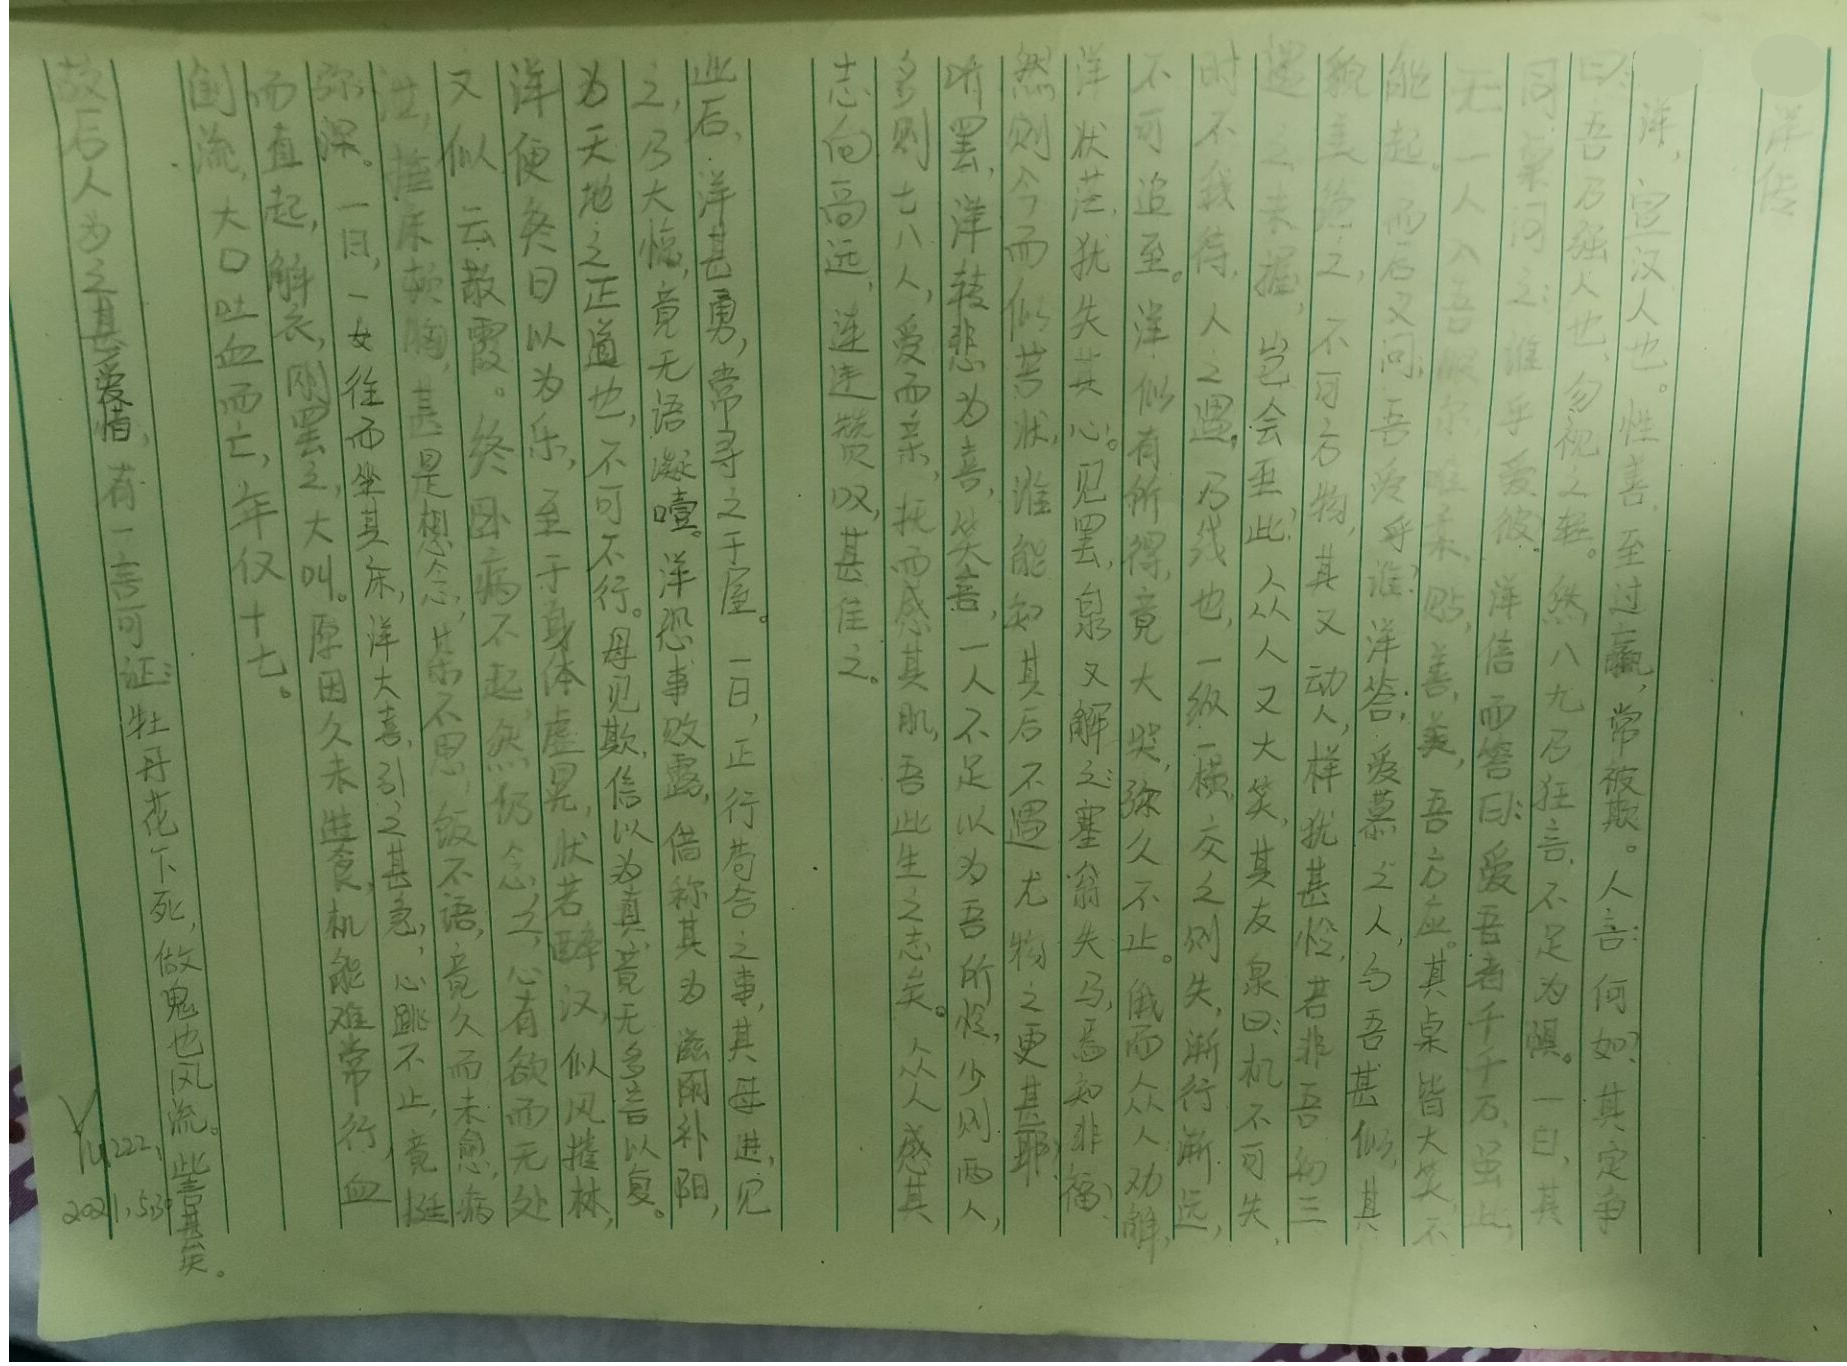 洋传
洋，宣汉人也。性善，至过赢，常被欺。人言：何如？其定争
曰：吾乃强人也，勿视之轻。然八九乃狂言，不足为惧。一日，其
同桌问之：谁乎爱彼。洋信而答曰：爱吾者千千万，虽此，
无一人入吾眼尔，唯柔、贴、善、美，吾方应。其桌皆大笑，不
能起。而后又问：吾爱乎谁？洋答：爱慕之人，与吾甚似，其
貌美绝之，不可方物，其又动人，样犹甚怜，若非吾初三
遇之未握，岂会至此？众人又大笑，其友泉曰：机不可失，
时不我待，人之遇，乃线也，一纵一横，交之则失，渐行渐远，
不可追至。洋似有所得，竟大哭，弥久不止。俄而众人劝解，
洋状茫，犹失其心。见罢，泉又解之：塞翁失马，焉知非福？
然则今而似苦状，谁能知其后不遇尤物之更甚耶？
听罢，洋转悲为喜，笑言，一人不足以为吾所怜，少则两人，
多则七八人，爱而亲，抚而感其肌，吾此生之志矣。众人感其
志向高远，连连赞叹，甚佳之。
此后，洋甚勇，常寻之于屋。一日，正行苟合之事，其母进，见
之，乃大恼，竟无语凝噎。洋恐事败露，借称其为滋阴补阳，
为天地之正道也，不可不行。母见欺，信以为真，竟无多言以复。
洋便终日以为乐，至于身体虚晃，状若醉汉，似风摧林，
又似云散霞。终卧病不起，然仍念之，心有欲而无处
泄，捶床顿胸，甚是想念，茶不思，饭不语，竟久而未愈，病
弥深。一日，一女往而坐其床，洋大喜，引之甚急，心跳不止，竟挺
而直起，解衣，刚罢之，大叫。原因久未进食，机能难常行，血
倒流，大口吐血而亡，年仅十七。
故后人为之甚爱惜，有一言可证：牡丹花下死，做鬼也风流。此言甚矣。
2021,5.30